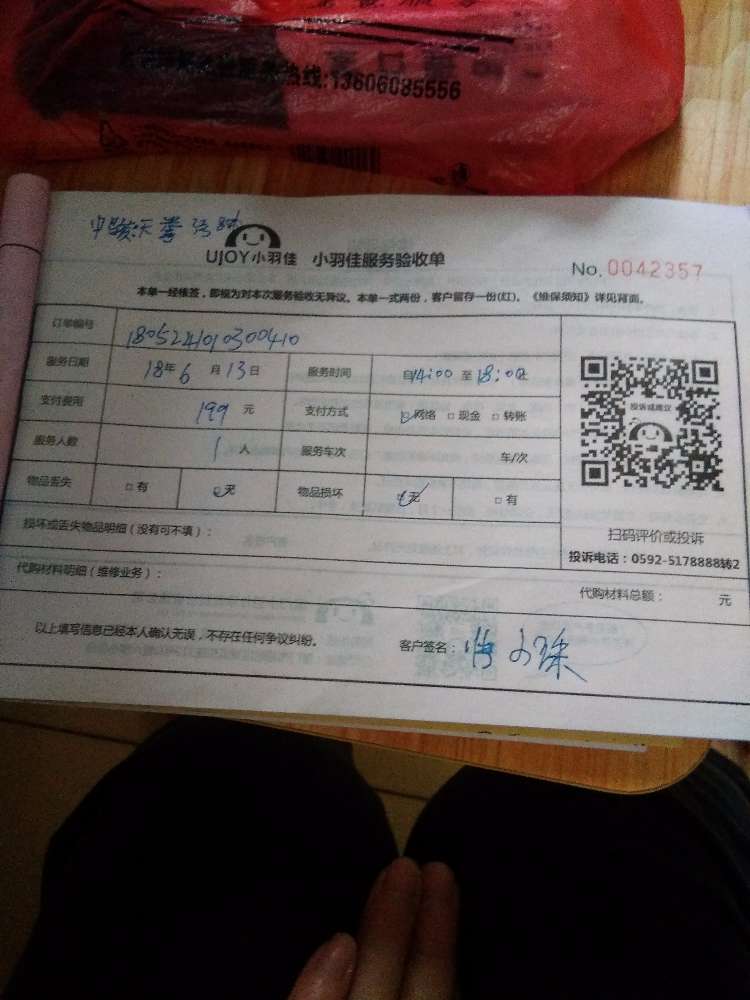 热线:13606085556
中骏天峯
UJOY小羽佳 小羽佳服务验收单 No. 0042357
本单一经核签，即视为对本次服务验收无异议。本单一式两份，客户留存一份(红)。《维保须知》详见背面。
订单编号 1805241010300410
服务日期 18年6月13日 服务时间 自14:00至18:00止
支付费用 199元 支付方式 网络 □现金 □转账
服务人数 1人 服务车次 车/次
物品丢失 □有 无 物品损坏 无 □有
投诉或建议
扫码评价或投诉
投诉电话：0592-5178888转2
损坏或丢失物品明细（没有可不填）：
代购材料明细（维修业务）： 代购材料总额： 元
以上填写信息已经本人确认无误，不存在任何争议纠纷。 客户签名：